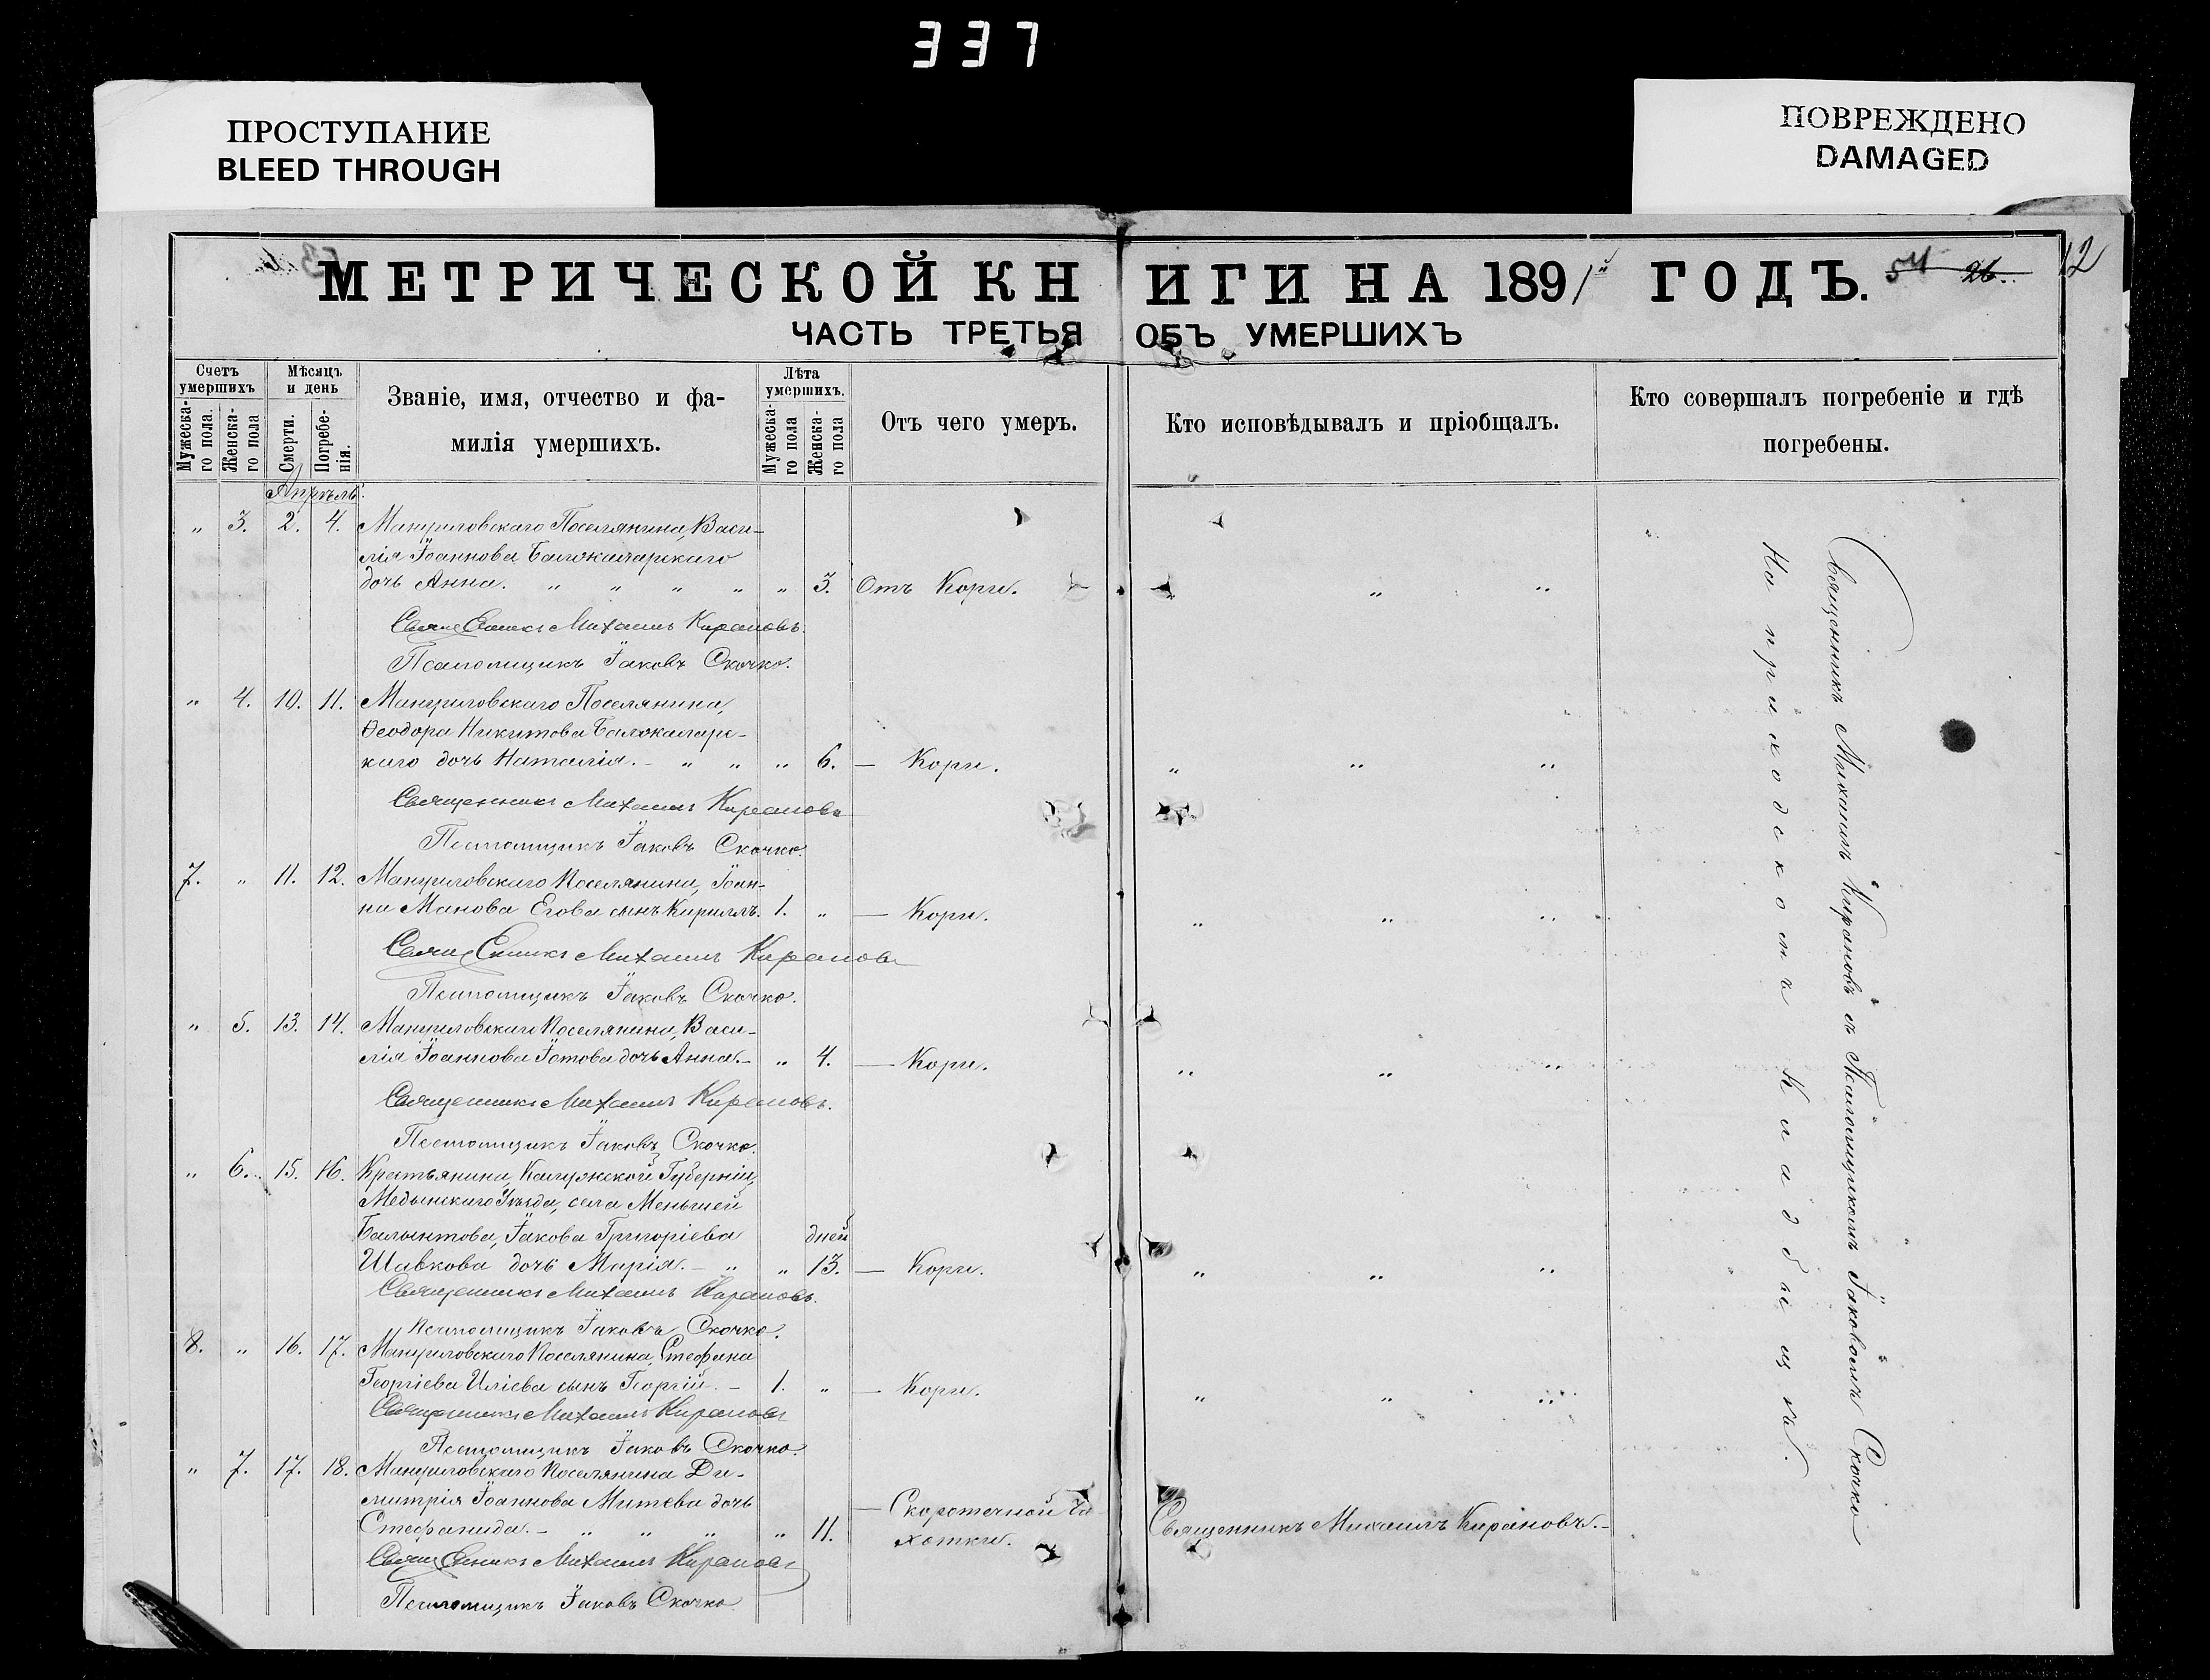 337
ПРОСТУПАНИЕ
BLEED THROUGH
ПОВРЕЖДЕНО
DAMAGED
МЕТРИЧЕСКОЙ КНИГИ НА 1891й ГОДЪ.
54 26.
12
ЧАСТЬ ТРЕТЬЯ ОБЪ УМЕРШИХЪ
Счетъ умершихъ
Мужескаго пола.
Женскаго пола
Мѣсяцъ и день
Смерти.
Погребенія.
Званіе, имя, отчество и фамилія умершихъ.
Лѣта умершихъ.
Мужескаго пола
Женскаго пола
Отъ чего умеръ.
Кто исповѣдывалъ и пріобщалъ.
Кто совершалъ погребеніе и гдѣ погребены.
Апрѣль.
„ 3. 2. 4. Мануиловскаго Поселянина, Васи-
лія Іоаннова
дочь Анна. „ „ „ „ „ 3. Отъ Кори. „ „ „
Священникъ Михаилъ Кирановъ.
Псаломщикъ Іаковъ Скочко.
„ 4. 10. 11. Мануиловскаго Поселянина,
Ѳеодора Никитова
каго дочь Наталія. – „ „ „ 6. — Кори. „ „ „
Священникъ Михаилъ Кирановъ
Псаломщикъ Іаковъ Скочко.
7. „ 11. 12. Мануиловскаго Поселянина, Іоан-
на Манова Егова сынъ Кириллъ. 1. „ — Кори. „ „ „
Священникъ Михаилъ Кирановъ
Псаломщикъ Іаковъ Скочко.
„ 5. 13. 14. Мануиловскаго Поселянина, Васи-
лія Іоаннова Іотова дочь Анна. – „ 4. — Кори. „ „ „
Священникъ Михаилъ Кирановъ.
Псаломщикъ Іаковъ Скочко.
„ 6. 15. 16. Крестьянина, Калужской Губерніи,
Медынскаго Уѣзда, села Меньшей
Іакова Григоріева дней
Шавкова дочь Марія. – „ „ 13. — Кори. „ „ „
Священникъ Михаилъ Кирановъ.
Псаломщикъ Іаковъ Скочко.
8. „ 16. 17. Мануиловскаго Поселянина, Стефана
Георгіева Иліева сынъ Георгій. – 1. „ — Кори. „ „ „
Священникъ Михаилъ Кирановъ
Псаломщикъ Іаковъ Скочко.
„ 7. 17. 18. Мануиловскаго Поселянина Ди-
митрія Іоаннова Митева дочь
Стефанида. – „ „ „ „ 11. — Скоротечной Ча-
хотки. Священникъ Михаилъ Кирановъ. –
Священникъ Михаилъ Кирановъ
Псаломщикъ Іаковъ Скочко
Священникъ Михаилъ Кирановъ съ Псаломщикомъ Іаковомъ Скочко
На приходскомъ Кладбищѣ.